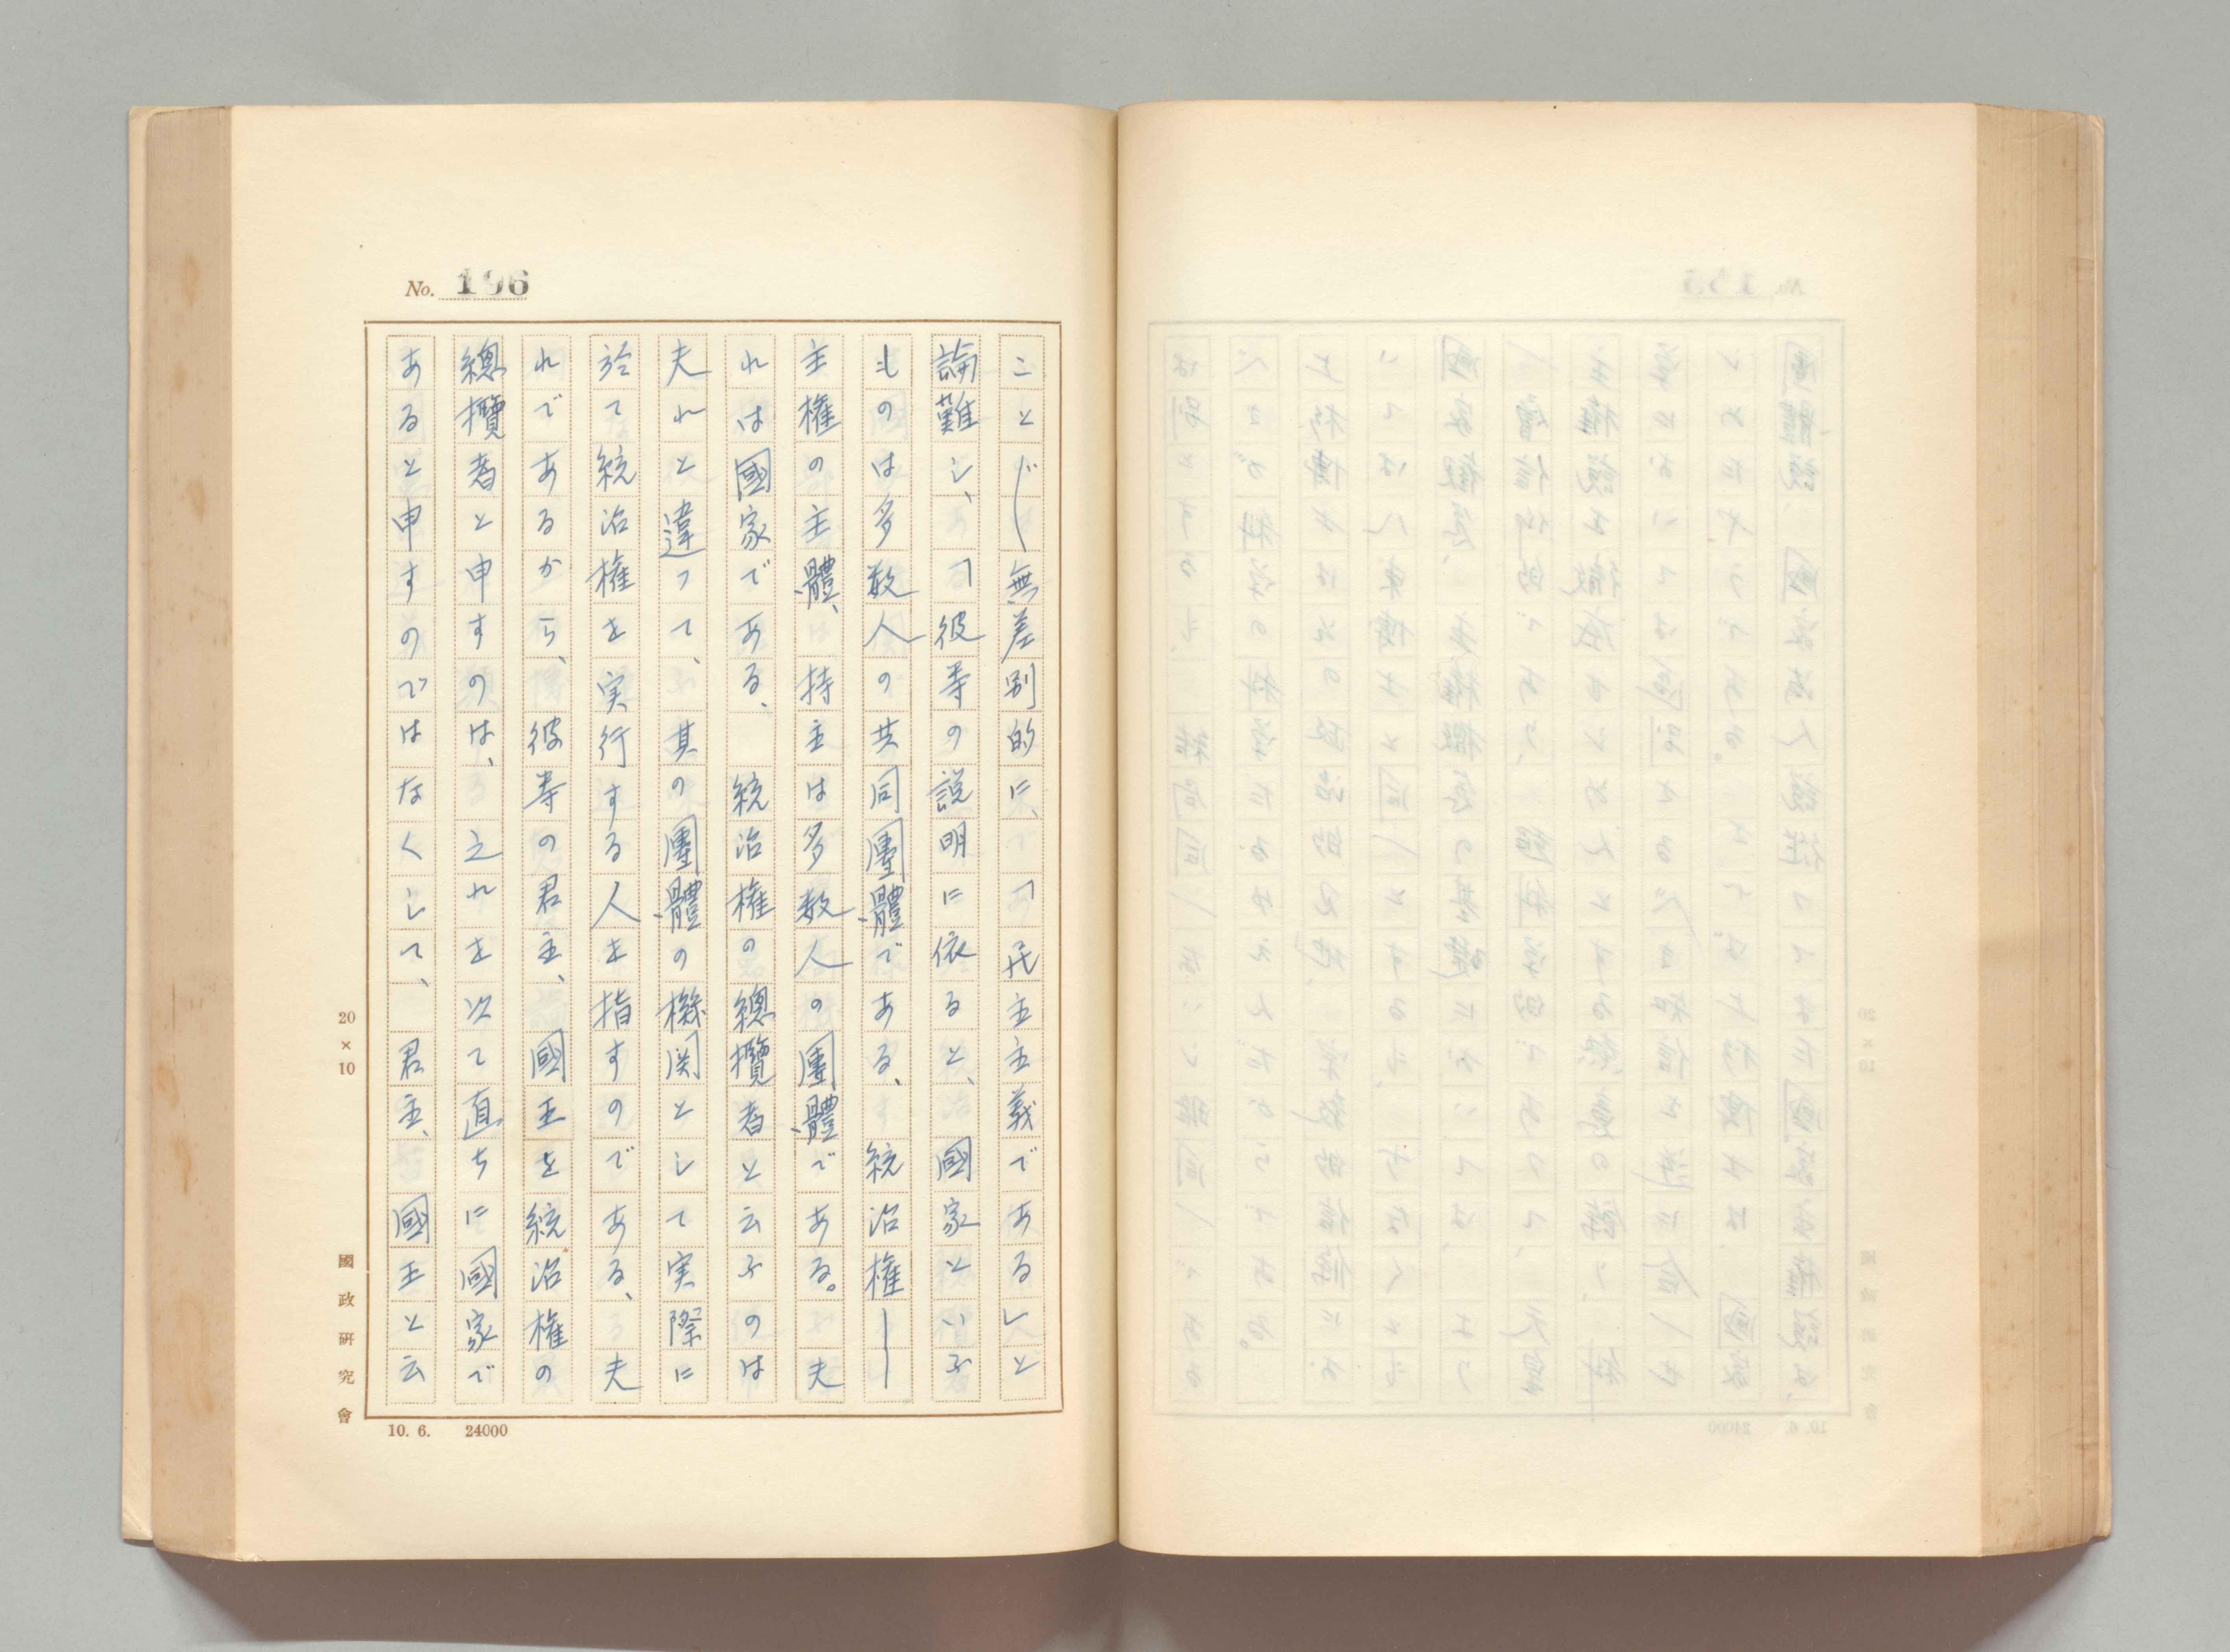 No. 196
こと〴〵無差別的に、「民主主義である」と
論難し、「彼等の説明に依ると、國家といふ
ものは多数人の共同團體である、統治権―
主権の主體、持主は多数人の團體である。夫
れは國家である、統治権の總攬者と云ふのは
夫れと違つて、其の團體の機関として実際に
於て統治権を実行する人を指すのである、夫
れであるから、彼等の君主、國王を統治権の
總攬者と申すのは、之れを以て直ちに國家で
あると申すのではなくして、君主、國王と云
20×10
國政研究會
10. 6. 24000